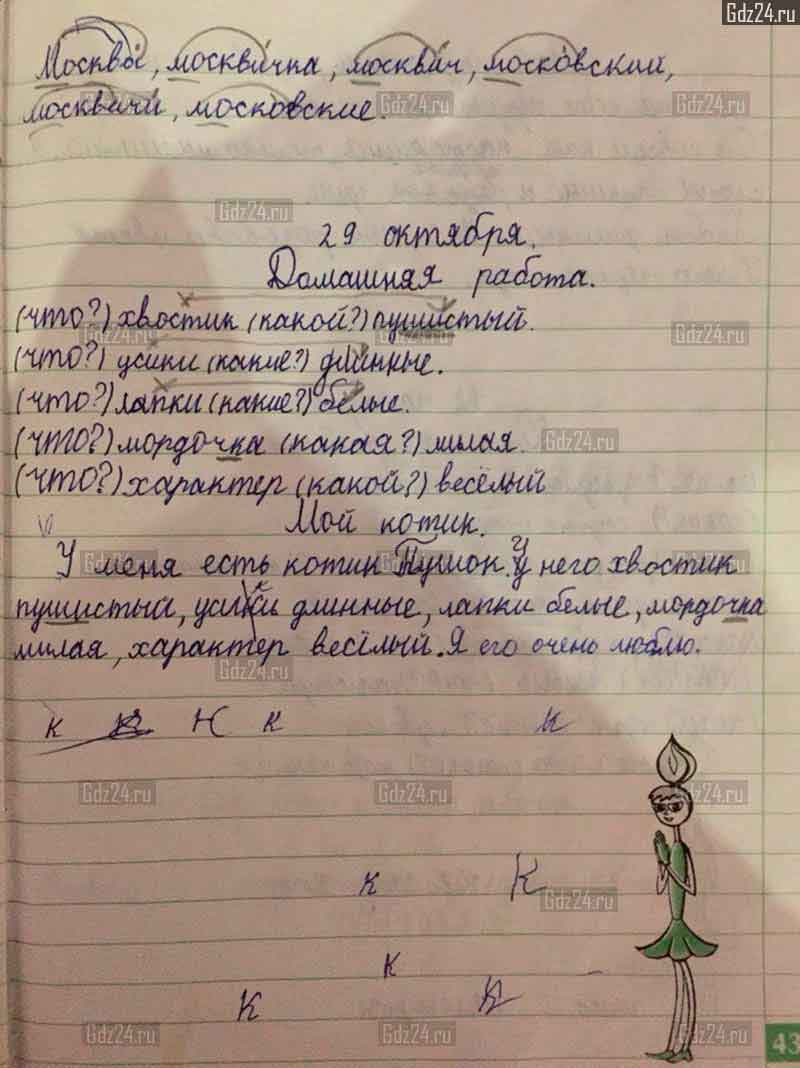 Gdz24.ru
Москвы, москвичка, москвич, московский,
москвичи, московские.
29 октября.
Домашняя работа.
(что?) хвостик (какой?) пушистый.
(что?) усики (какие?) длинные.
(что?) лапки (какие?) белые.
(что?) мордочка (какая?) милая.
(что?) характер (какой?) весёлый
Мой котик.
У меня есть котик Пушок. У него хвостик
пушистый, усики длинные, лапки белые, мордочка
милая, характер весёлый. Я его очень люблю.
к к к к к
к к
к
к к
43